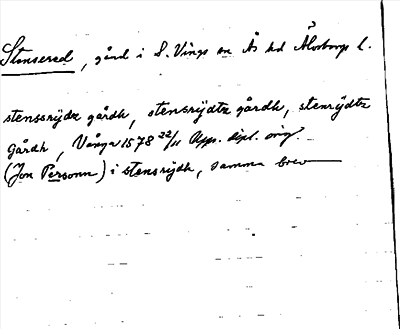 Stensered, gård i S. Vings sn Ås hd Älvsborgs l.
stenssrijdz gårdh, stensrijdtz gårdh, stenrijdtz
gårdh, Vånga 1578 22/11 Upps. dipl. orig.
(Jon Personn) i stensrijdh, samma brev